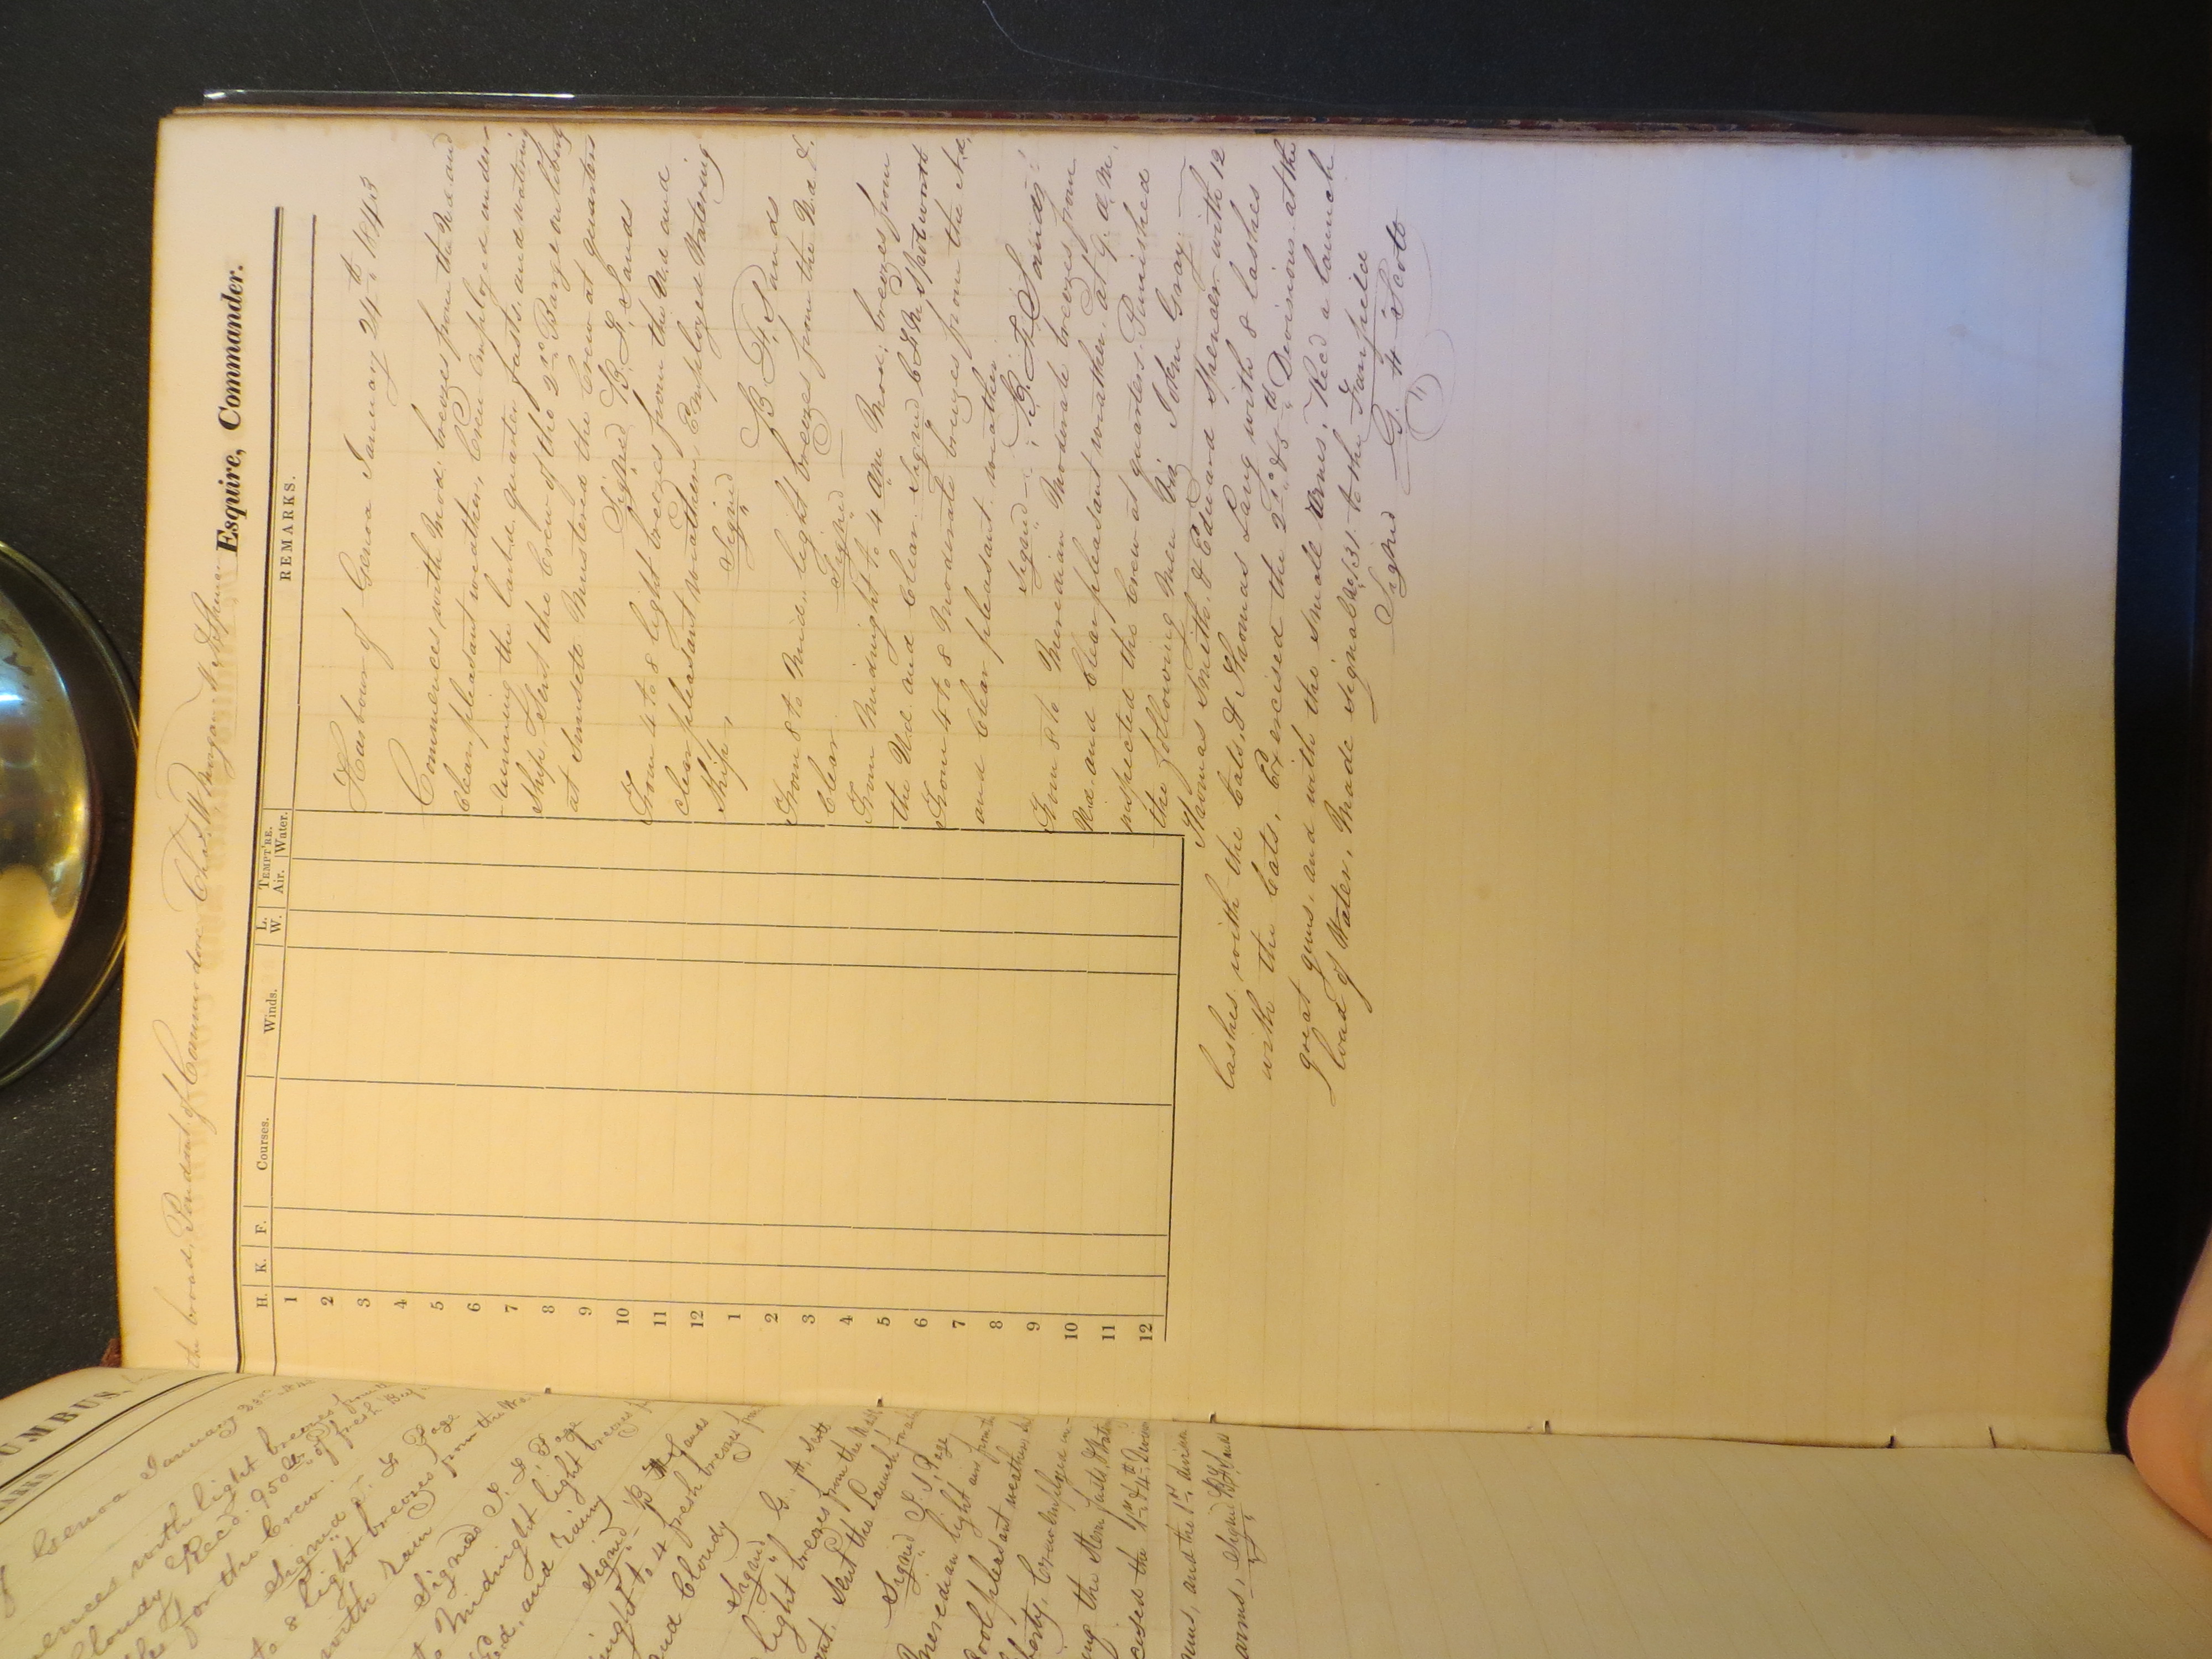 the broad Pendant of Commodore Chas. W. Morgan
Esquire, Commander.
H. K. F. Courses. Winds. L. W. TEMPT'RE. Air. Water. REMARKS.
1
2
3
4
5
6
7
8
9
10
11
12
1
2
3
4
5
6
7
8
9
10
11
12
Harbour of Genoa January 24th 1843
Commences with Mod: breezes from the Nd. and
Clear pleasant weather, Crew employed under-
-running the larbd. quarter fasts, and watering
Ship, Sent the Crew of the 2nd Barge on liberty
at Sunsett Mustered the Crew at quarters
Signed B. F. Sands
From 4 to 8 light breezes from the Nd and
clear pleasant weather, Employed Watering
Ship,
Signed B. F. Sands
From 8 to Mid. light breezes from the Nd &.
Clear
Signed
From Midnight to 4 am Mod: breezes from
the Nd. and Clear. Signed
From 4 to 8 Moderate breezes from the Nd,
and Clear pleasant weather
Signed B. F. Sands
From 8 to Meredian Moderate breezes from
Nd. and Clear pleasant weather, at 9. a.m.
inspected the Crew at quarters. Punished
the following Men Viz John Gray.
Thomas Smith, & Edward Spencer with 12
lashes with the Cats, & Thomas Lang with 8 lashes
with the Cats, Exercised the 2nd & 5th Devisions at the
great guns, and with the Small Arms, Recd a launch
load of Water, Made signal 31 to the Fairfield
Signed G. H Scott
UMBUS,
Genoa January
with light breezes
Cloudy Recd. 950 lbs of fresh Beef
for the Crew.
Signed
8 light breezes from the
with rain
Signed
Midnight light breezes
and rainy
Signed
to 4 fresh breezes
and Cloudy
Signed G. H. Scott
light breezes from the
Sent the Launch
Signed
Meredian light airs from
Cool pleasant weather
liberty, Crew employed
the Stern fasts,
the 1st & 4th Devisions
guns, and the 1st devision
arms, Signed